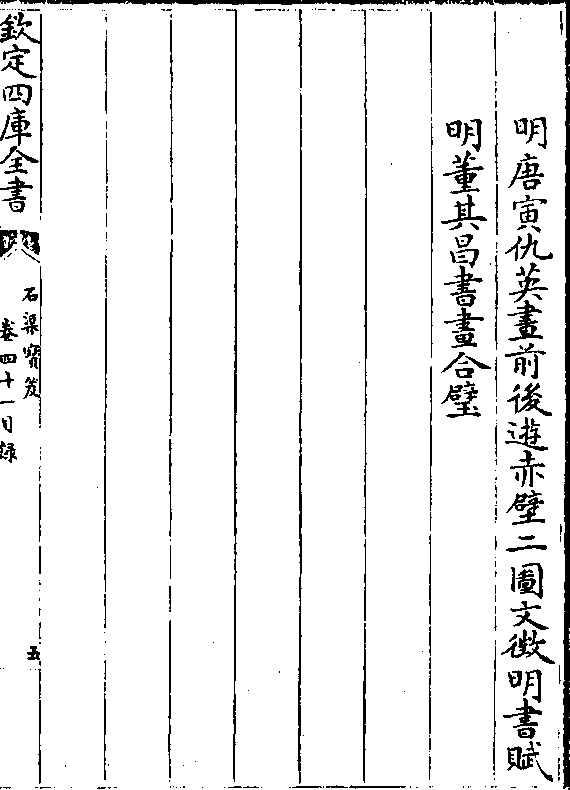 明唐寅仇英畫前後遊赤壁二圖文徴明書賦
明董其昌書畫合璧
欽定四庫全書
石渠寳笈
卷四十一目録
五